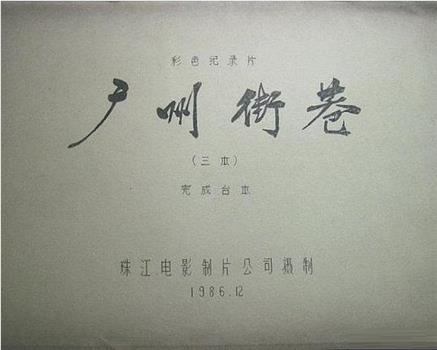 彩色纪录片
广州街巷
(三本)
完成台本
珠江电影制片公司摄制
1986.12